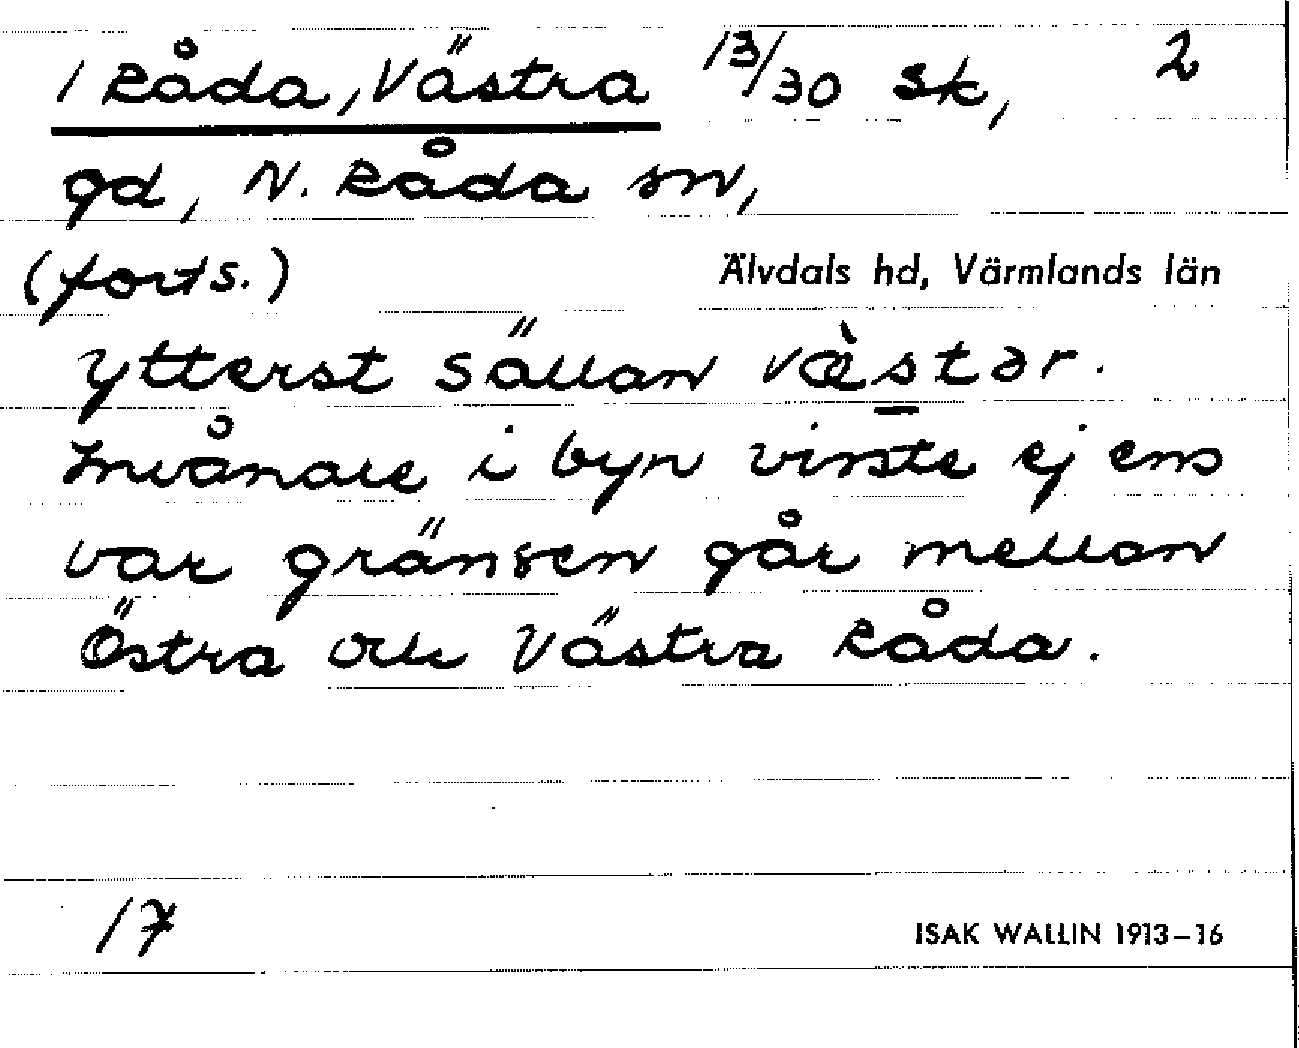 1 Råda, Västra 13/30 sk, 2
gd, N. Råda sn,
(forts.) Älvdals hd, Värmlands län
Ytterst sällan væ̀s̲tər.
Invånare i byn visste ej ens
var gränsen går mellan
Östra och Västra Råda.
17 ISAK WALLIN 1913–16